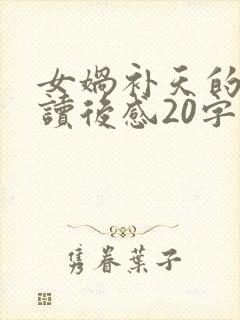 女媧补天的
讀後感20字
隽眷葉子